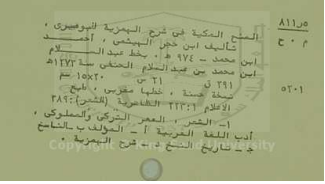 ٨١١ر٥
المنح المكية في شرح الهمزية للبوصيري ،
م . ح
تأليف ابن حجر الهيتمي ، أحمد
ابن محمد - ٩٧٤ هـ . بخط عبد السلام
ابن محمد بن عبد السلام الحنفي سنة ١٢٧٣ هـ
٢٩١ ق ٢١ س ١٥×٢٠ سم
نسخة حسنة ، خطها مغربي ، طبع
٥٢٠١
الأعلام ١:٢٢٣ الظاهرية (الشعر): ٣٨٩
١- الشعر ، العصر التركي والمملوكي ،
أدب اللغة العربية أ - المؤلف ب - الناسخ
ج - تاريخ النسخ د - شرح الهمزية .